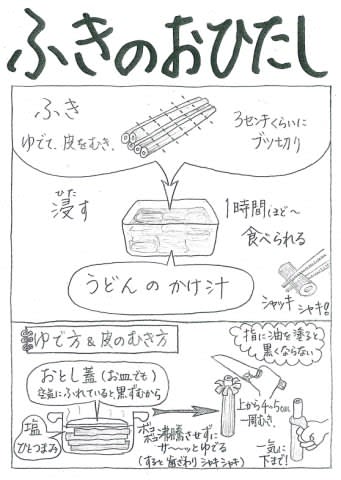 ふきのおひたし
ふき
ゆでて、皮をむき、
3センチくらいに
ブツ切り
ひた
浸す
1時間ほど〜
食べられる
うどんのかけ汁
シャッキ
シャキ!
ゆで方&皮のむき方
指に油を塗ると
黒くならない
おとし蓋(お皿でも)
空気にふれていると、黒ずむから
塩
ひとつまみ
沸騰させずに
サ〜〜ッとゆでる
上から4〜5cm
一周むき、
一気に
下まで!